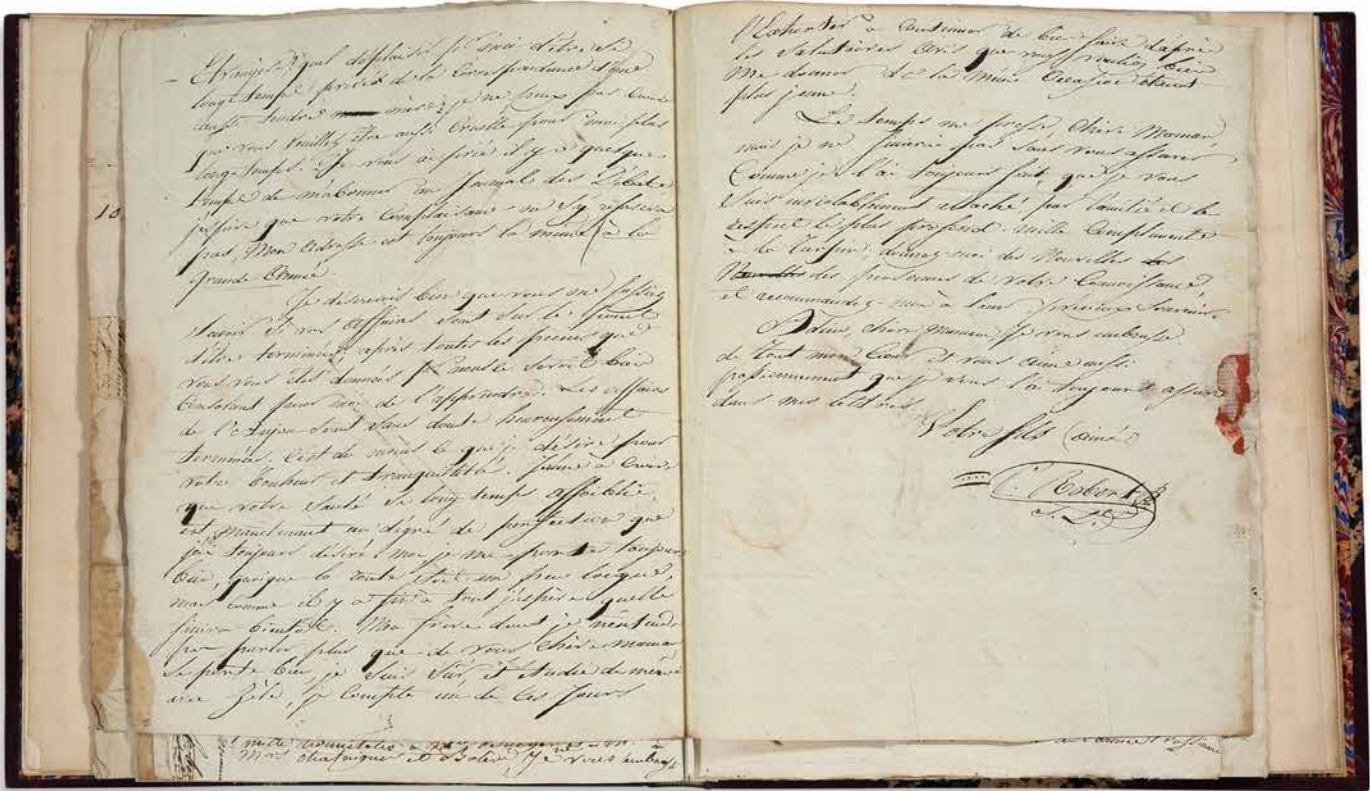 Etranger. quel déplaisir pr. moi d'être si
longtemps privé de la Correspondance d'une
aussi tendre mère; je ne peux pas Croire
que vous veuillez être aussi Cruelle pour moi plus
long-temps. Je vous ai prié il y a quelque
temps de m'abonner au Journal des Débats
j'espère que votre Complaisance ne s'y refusera
pas, Mon adresse est toujours la même (à la
Grande Armée.
10
Je désirerois bien que vous me fassiez
savoir si vos Affaires sont sur le point
d'être terminées, après toutes les peines que
vous vous êtes données pr. nous le seroit bien
Consolant pour moi de l'apprendre. Les affaires
de l'Anjou sont sans doute heureusement
terminées. C'est du moins ce que je désire pour
votre bonheur et tranquillité. J'aime à Croire
que votre Santé si long-temps affoiblie,
est maintenant au dégré de perfection que
j'ai toujours désiré. moi je me porte toujours
bien, quoique la route soit un peu longue,
mais comme il y a fin à tout j'espère quelle
finira bientôt. Mon frère dont je n'entends
pas parler plus que de vous Chère maman
se porte bien, je suis sûr, et étudie de même
avec zèle, je Compte un de ces Jours
l'Exhorter à Continuer de bien faire d'après
les salutaires avis que vous vouliez bien
me donner de la même Occasion étant
plus jeune.
Le temps me presse, Chère Maman,
mais je ne finirai pas sans vous assurer
Comme je l'ai toujours fait, que je vous
suis inviolablement attaché par l'amitié et le
respect le plus profond. mille Compliments
à la donnez-moi des Nouvelles des
Nouvelles des personnes de votre Connoissance,
et recommandez-moi à leur précieux Souvenir.
Adieu, chère Maman, je vous embrasse
de tout mon Coeur et vous aime aussi
passionnement que je vous l'ai toujours assuré
dans mes lettres
Votre fils (ainé)
C. Robert
S. L.
et je vous embrasse